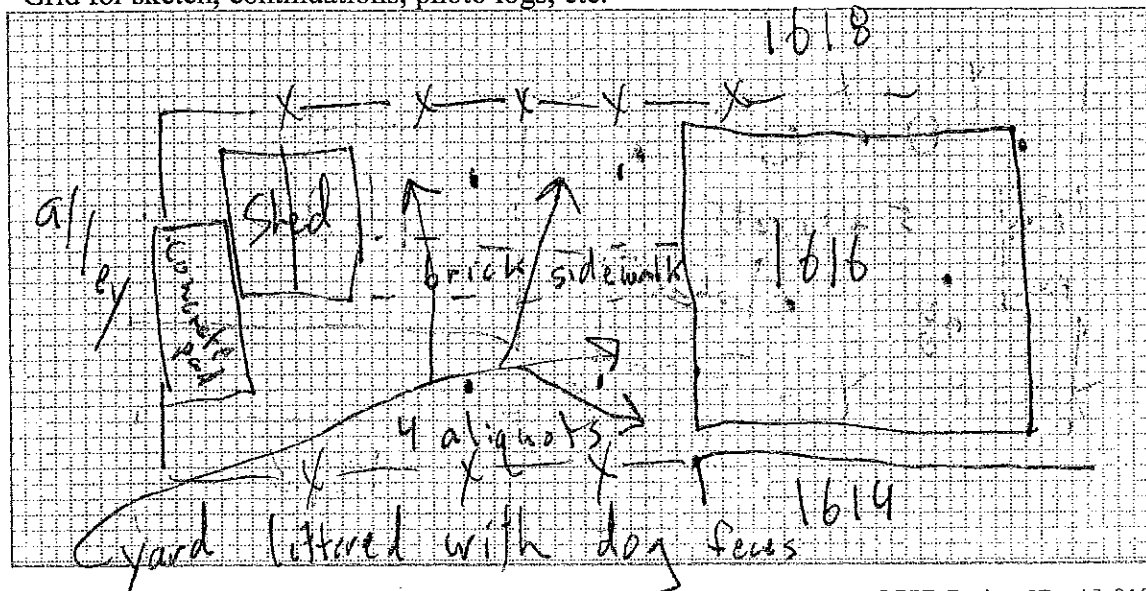 Grid for sketch, continuations, photo logs, etc.
1618
alley
Shed
Concrete
pad
brick sidewalk
1616
4 aliquots
1614
yard littered with dog feces